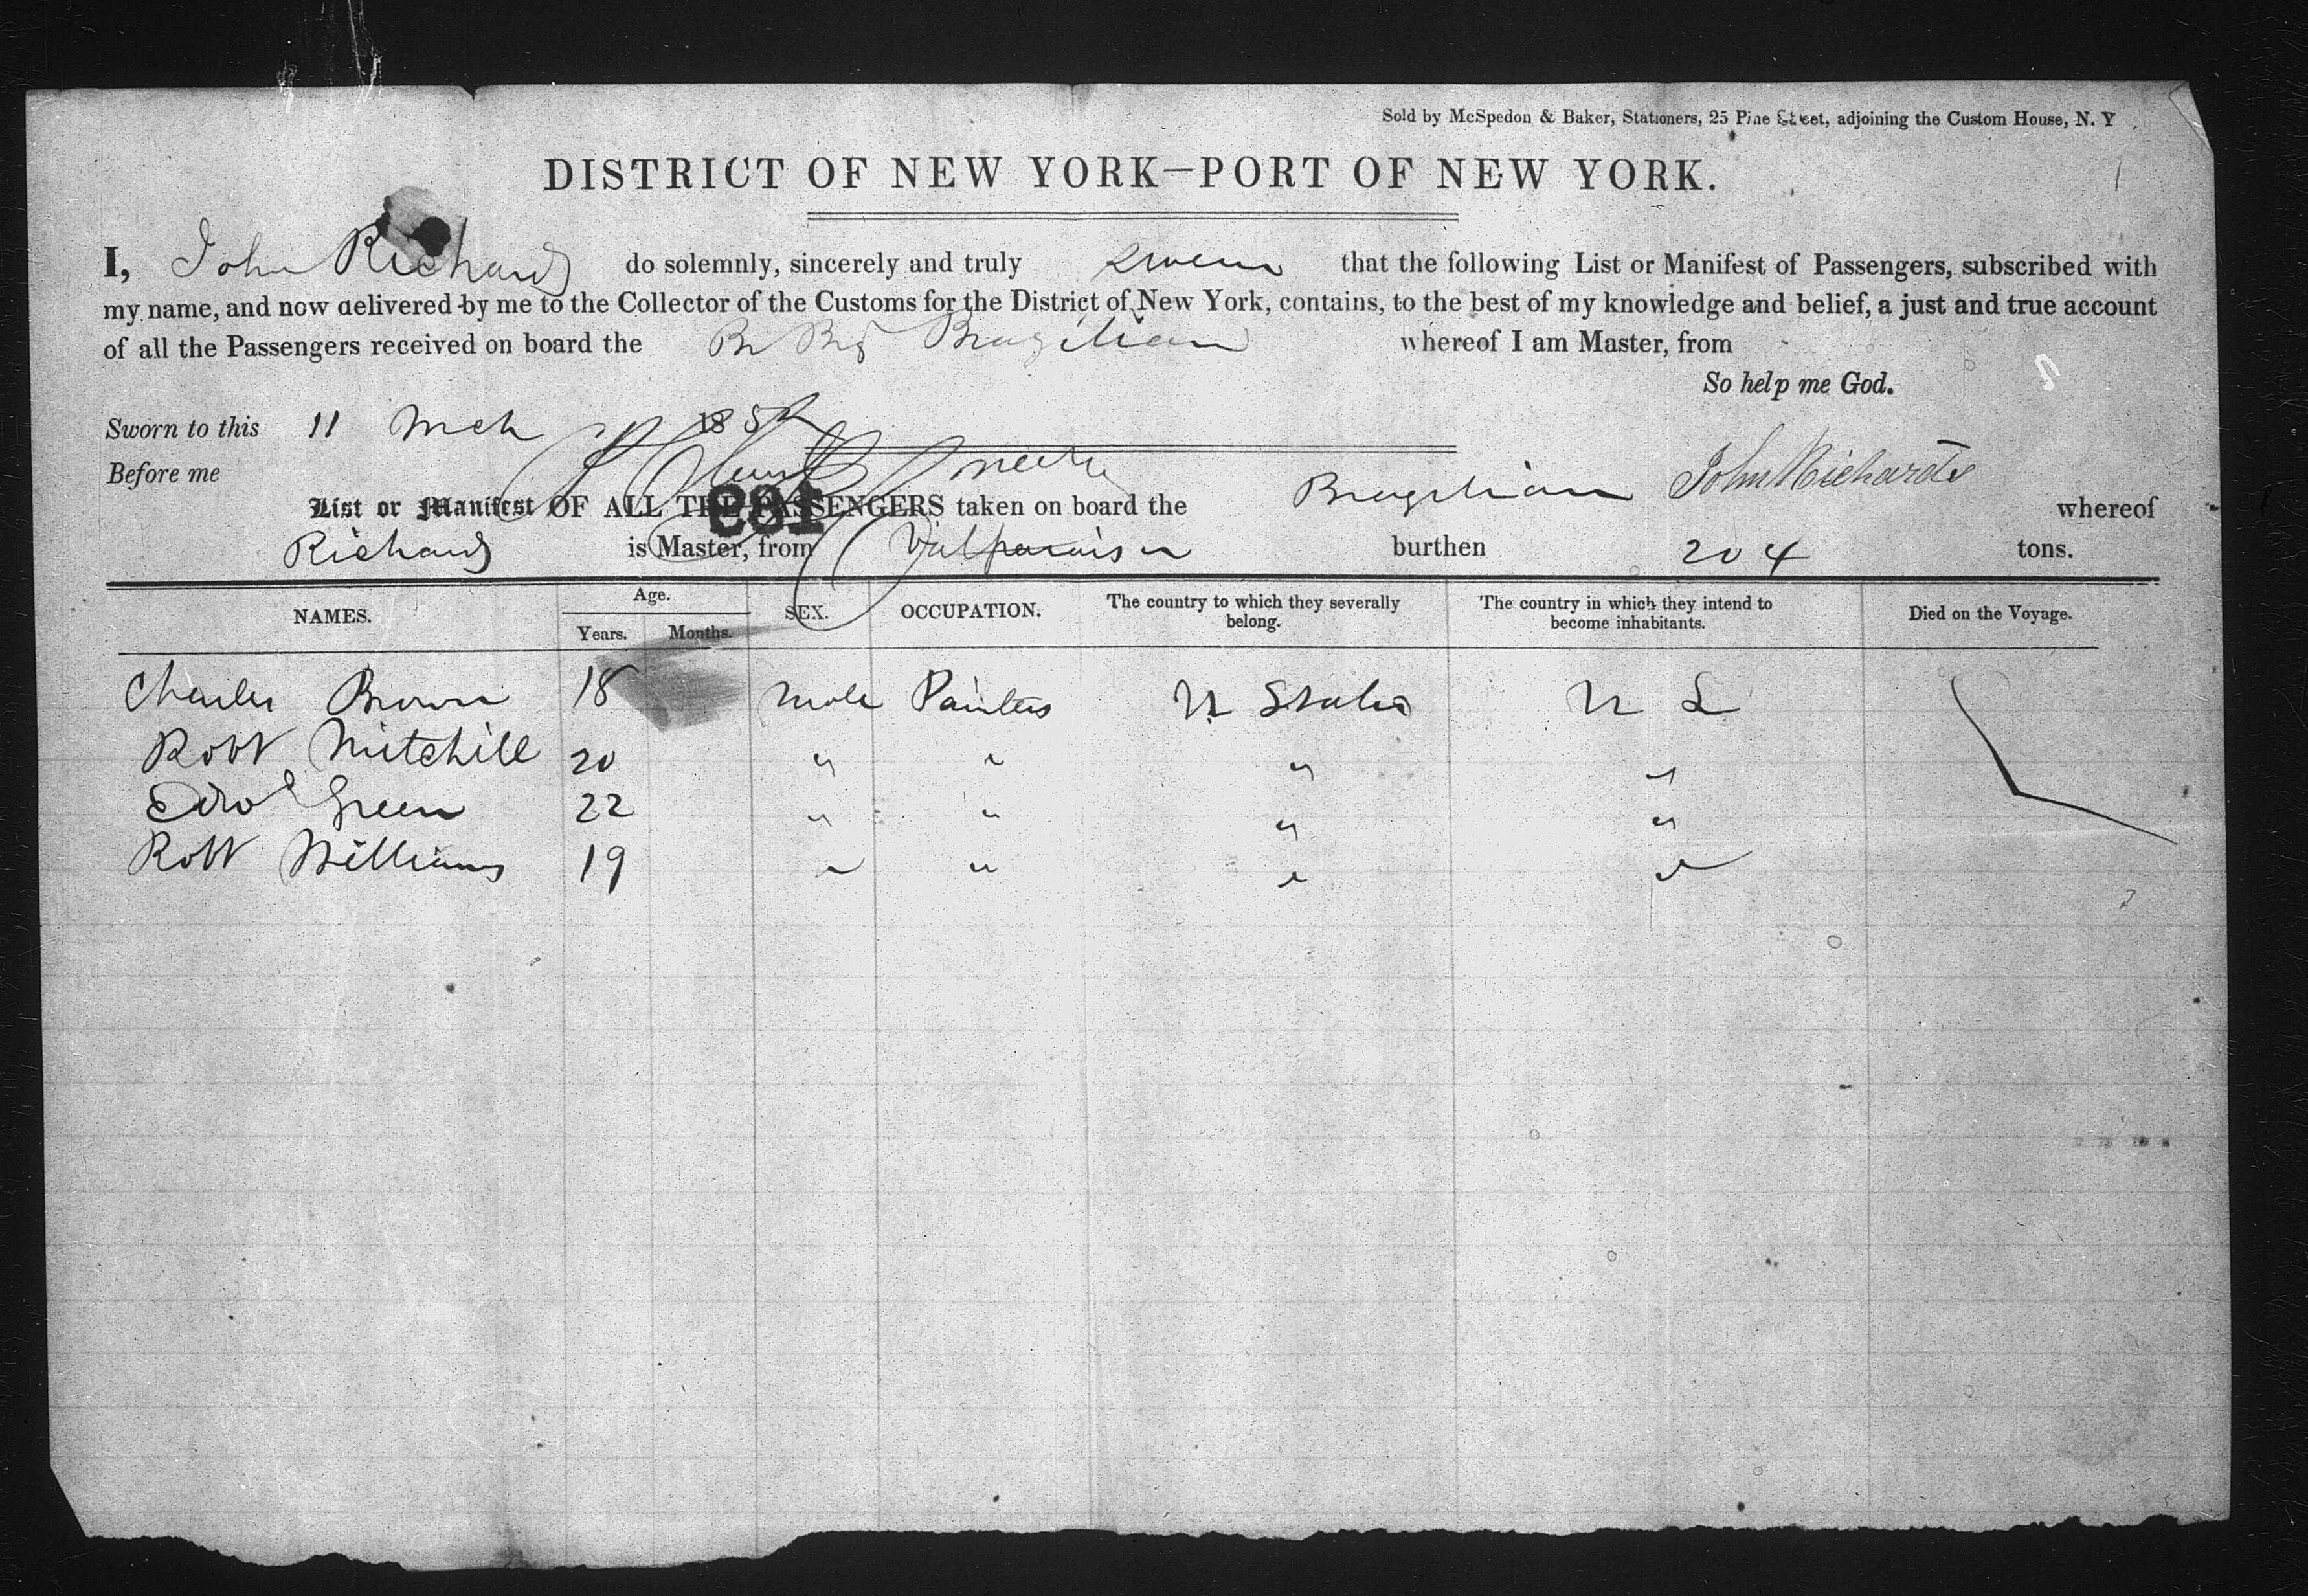 Sold by McSpedon & Baker, Stationers, 25 Pine Street, adjoining the Custom House, N. Y
DISTRICT OF NEW YORK—PORT OF NEW YORK.
I, John Richards do solemnly, sincerely and truly swear that the following List or Manifest of Passengers, subscribed with
my name, and now delivered by me to the Collector of the Customs for the District of New York, contains, to the best of my knowledge and belief, a just and true account
of all the Passengers received on board the Br Bg Brazilian whereof I am Master, from
So help me God.
Sworn to this 11 Mch 185
Before me
John Richards
List or Manifest OF ALL THE PASSENGERS taken on board the Brazilian whereof
Richards is Master, from Valparaiso burthen 204 tons.
NAMES. Age. Years. Months. SEX. OCCUPATION. The country to which they severally belong. The country in which they intend to become inhabitants. Died on the Voyage.
Charles Brown 18 male Painters U States U S
Robt Mitchill 20 " " " "
Edwd Green 22 " " " "
Robt Williams 19 " " " "